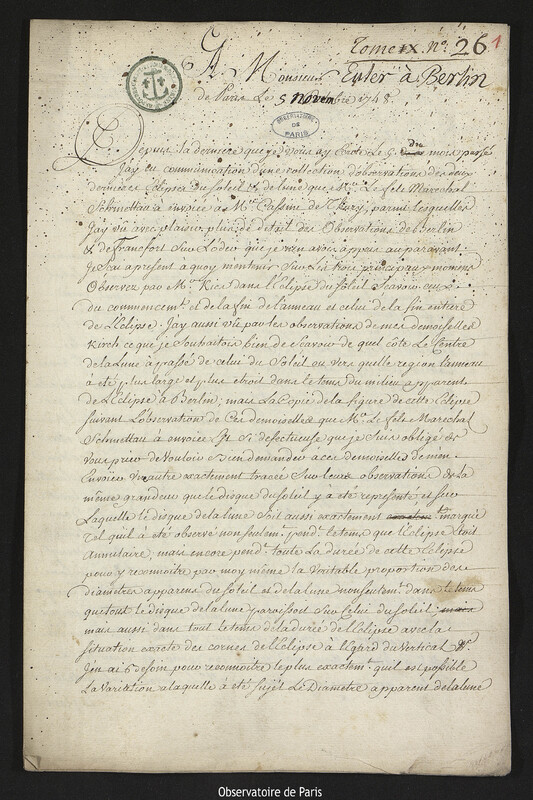 Tome IX. N.º 26 1
A Monsieur Euler à Berlin
de Paris Le 5 Novembre 1748.
OBSERVATOIRE DE PARIS
Depuis la derniere que je vous ay Ecrite Le 5.e du mois passé
Jay eu communication d'une collection d'observations des deux
dernieres Eclipses du Soleil & de lune que M.r Le feld Marechal
Schmettau à Envoiée à M.r Cassini de Thury, parmi lesquelles
Jay vû avec plaisir plus de détail des Observations de Berlin
& de francfort sur L'oder que je n'en avois appris auparavant.
Je scai apresent a quoy m'en tenir sur Les trois principaux momens
Observez par M.r Kies dans l'Eclipse du Soleil Scavoir ceux
du commencem.t et de la fin de l'anneau et celui de la fin entiere
de L'Eclipse. Jay aussi vû par les observations de mes demoiselles
Kirch ce que je souhaitois bien de Scavoir de quel côté Le Centre
de la Lune a passé de celui du Soleil ou vers quelle region l'anneau
à eté plus large et plus etroit dans le tems du milieu apparent
de L'Eclipse à Berlin; mais La Copie de la figure de cette Eclipse
suivant L'observation de Ces demoiselles que M.r Le feld Marechal
Schmettau à envoiée Est Si defectueuse que je suis obligé de
vous prier de Vouloir bien demander a ces demoiselles de m'en
Envoier une autre exactement tracée sur leurs observations de la
même grandeur que le disque du Soleil y a eté representé et sur
Laquelle le disque de la lune soit aussi exactement marqué
tel qu'il a eté observé non seulem.t pend.t le tems que l'Eclipse etoit
annulaire, mais encore pend.t toute la durée de cette Eclipse
pour y reconnoitre par moy même la veritable proportion des
diametres apparens du Soleil et de la lune non seulem.t dans le tems
que tout le disque de la lune paroissoit sur Celui du Soleil
mais aussi dans tout le tems de la durée de l'Eclipse avec la
situation exacte des cornes de l'Eclipse à l'Egard du Vertical &c.
J'en ai besoin pour reconnoitre le plus exactem.t qu'il est possible
La Variation a laquelle à eté sujet Le Diametre apparent de la lune
Observatoire de Paris